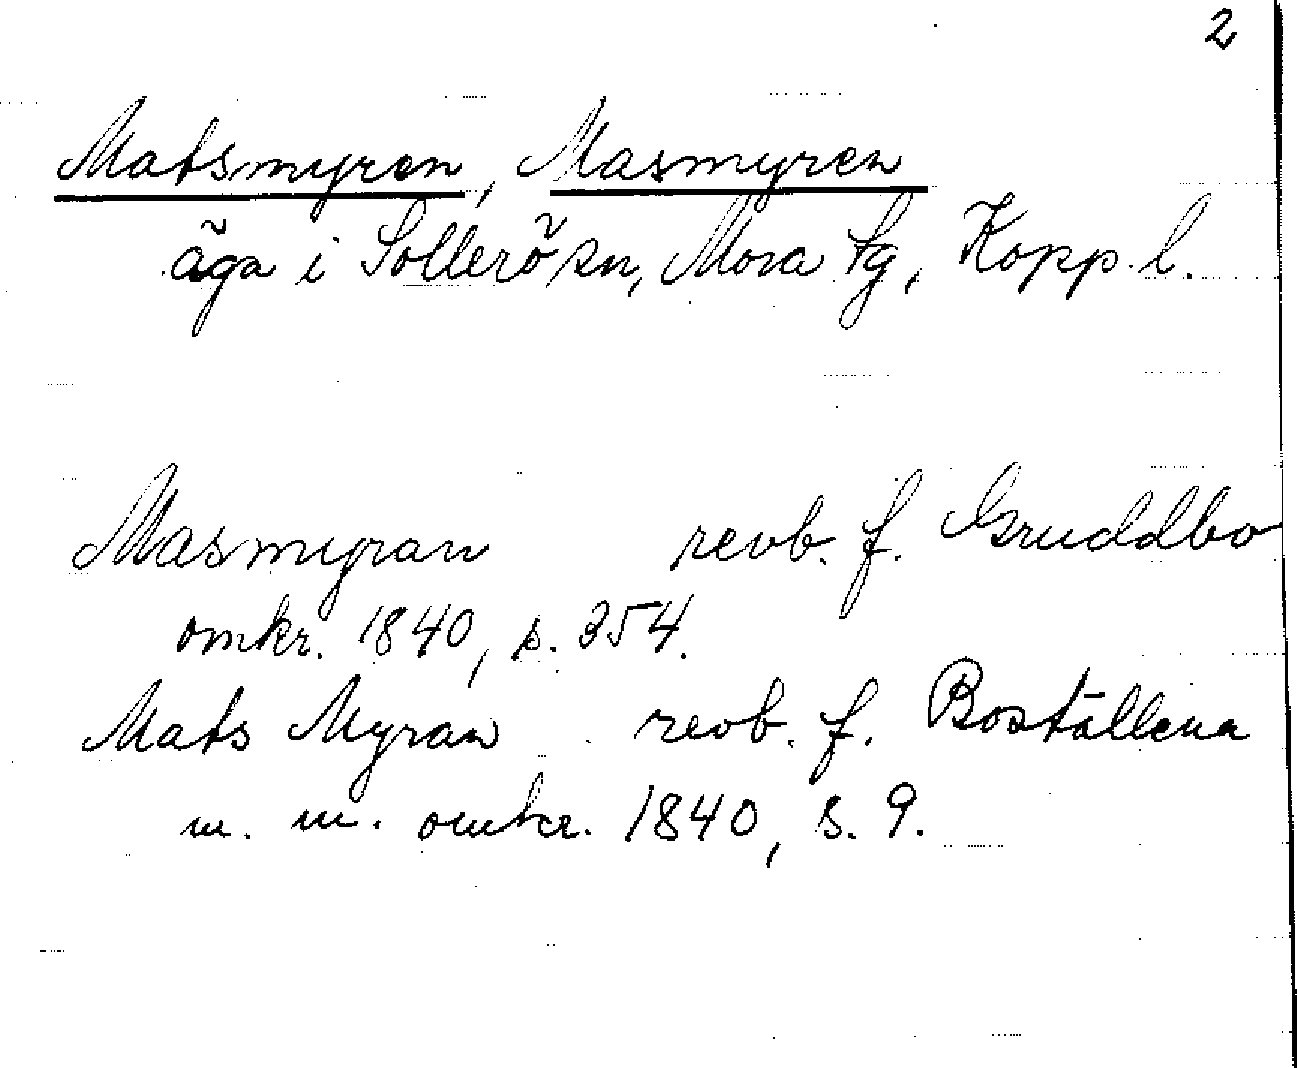 2
Matsmyren, Masmyren
äga i Sollerö sn, Mora tg, Kopp. l.
Masmyran revb. f. Gruddbo
omkr. 1840, s. 354.
Mats Myran revb. f. Boställena
m. m. omkr. 1840, s. 9.